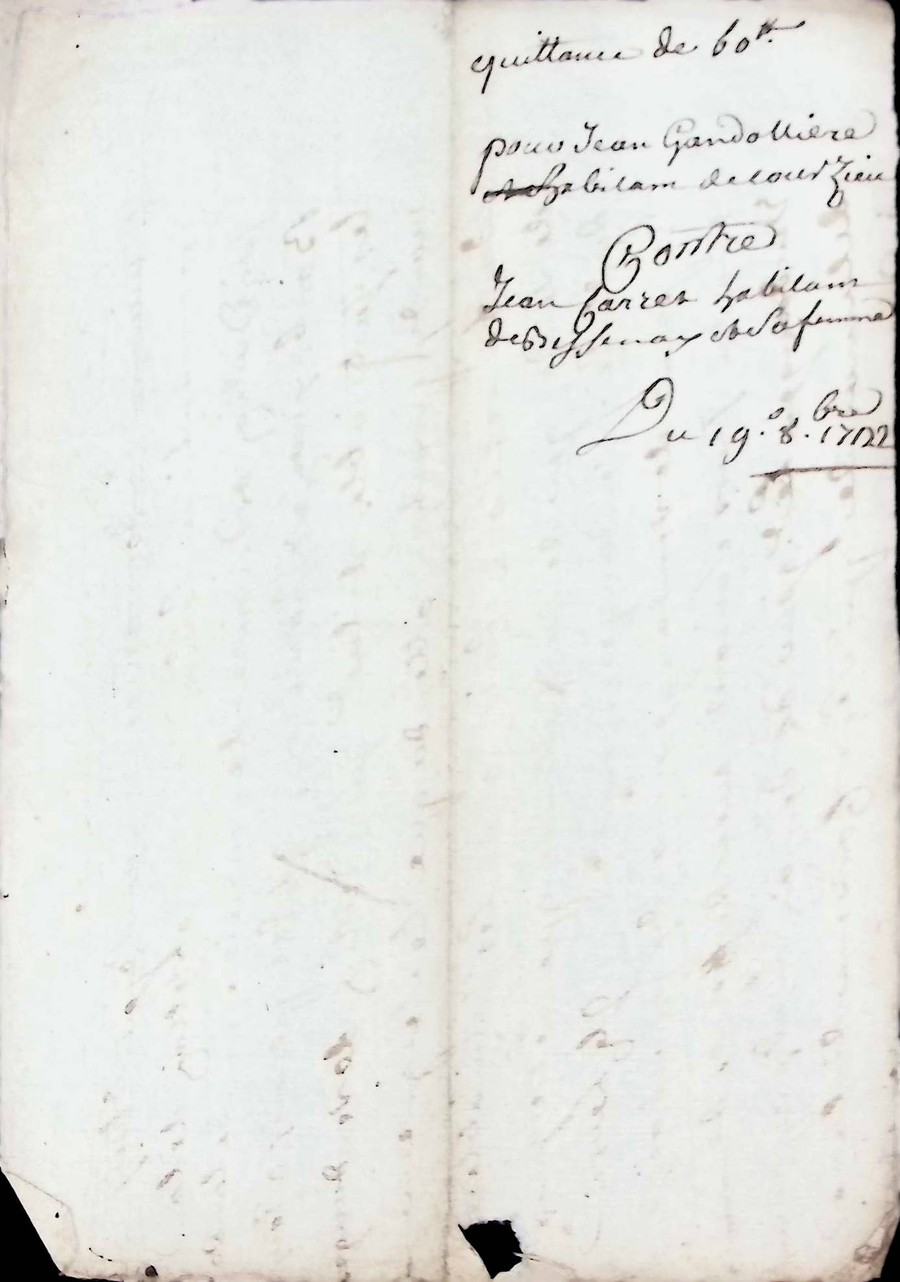 quittance de 60lt
pour Jean Gandolliere
habitant de courzieu
Contre
Jean Carret habitant
de Bessenay et sa femme
Du 19e. 8.bre 1722